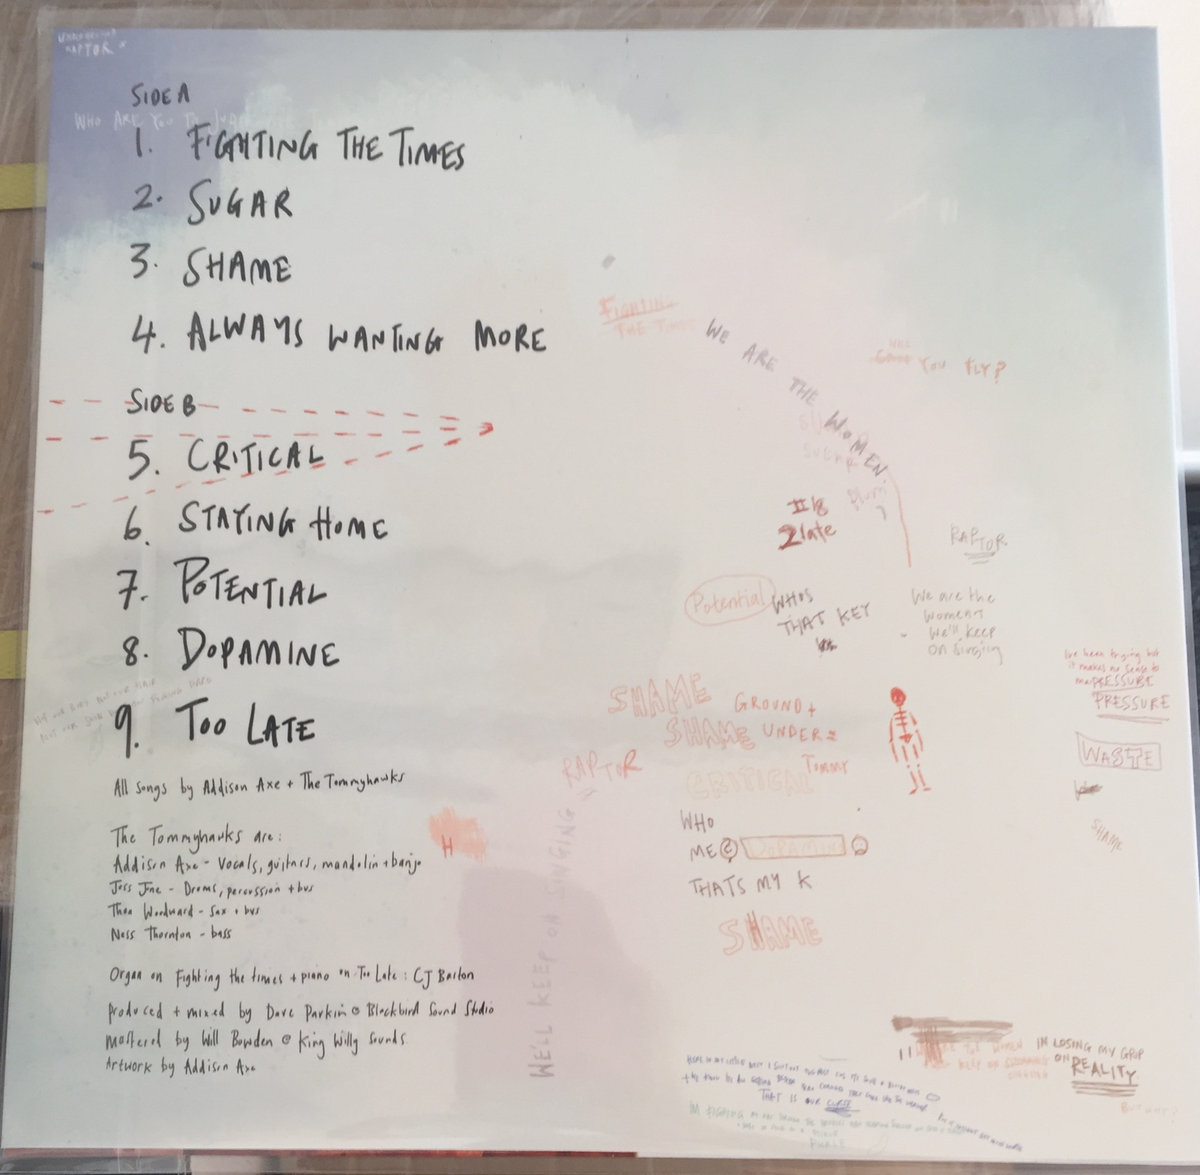 RAPTOR
SIDE A
WHO ARE YOU TO
1. FIGHTING THE TIMES
2. SUGAR
3. SHAME
4. ALWAYS WANTING MORE
SIDE B
5. CRITICAL
6. STAYING HOME
7. POTENTIAL
8. DOPAMINE
9. TOO LATE
All songs by Addison Axe + The Tommyhawks
The Tommyhawks are:
Addison Axe - Vocals, guitars, mandolin + banjo
Drums, percussion + bvs
Thea Woodward - Sax + bvs
Ness Thornton - bass
Organ on Fighting the times + piano on Too Late: CJ Barton
produced + mixed by Dave Parkin @ Blackbird Sound Studio
mastered by Will Bowden @ King Willy Sounds.
Artwork by Addison Axe
FIGHTING
THE TIMES
WE ARE THE WOMEN
WILL
YOU FLY?
SUGAR
2late
RAPTOR
Potential
WHOS
THAT KEY
We are the
women
We'll keep
on singing
I've been trying but
it makes no sense to
me PRESSURE
PRESSURE
WASTE
SHAME
SHAME
SHAME
GROUND +
UNDER
RAPTOR
CRITICAL
TOMMY
WHO
ME
DOPAMINE
THATS MY K
SHAME
H
WE'LL KEEP ON SINGING
IN LOSING MY GRIP
ON REALITY
BUT WHY?
THAT IS OUR CURSE
IM FIGHTING